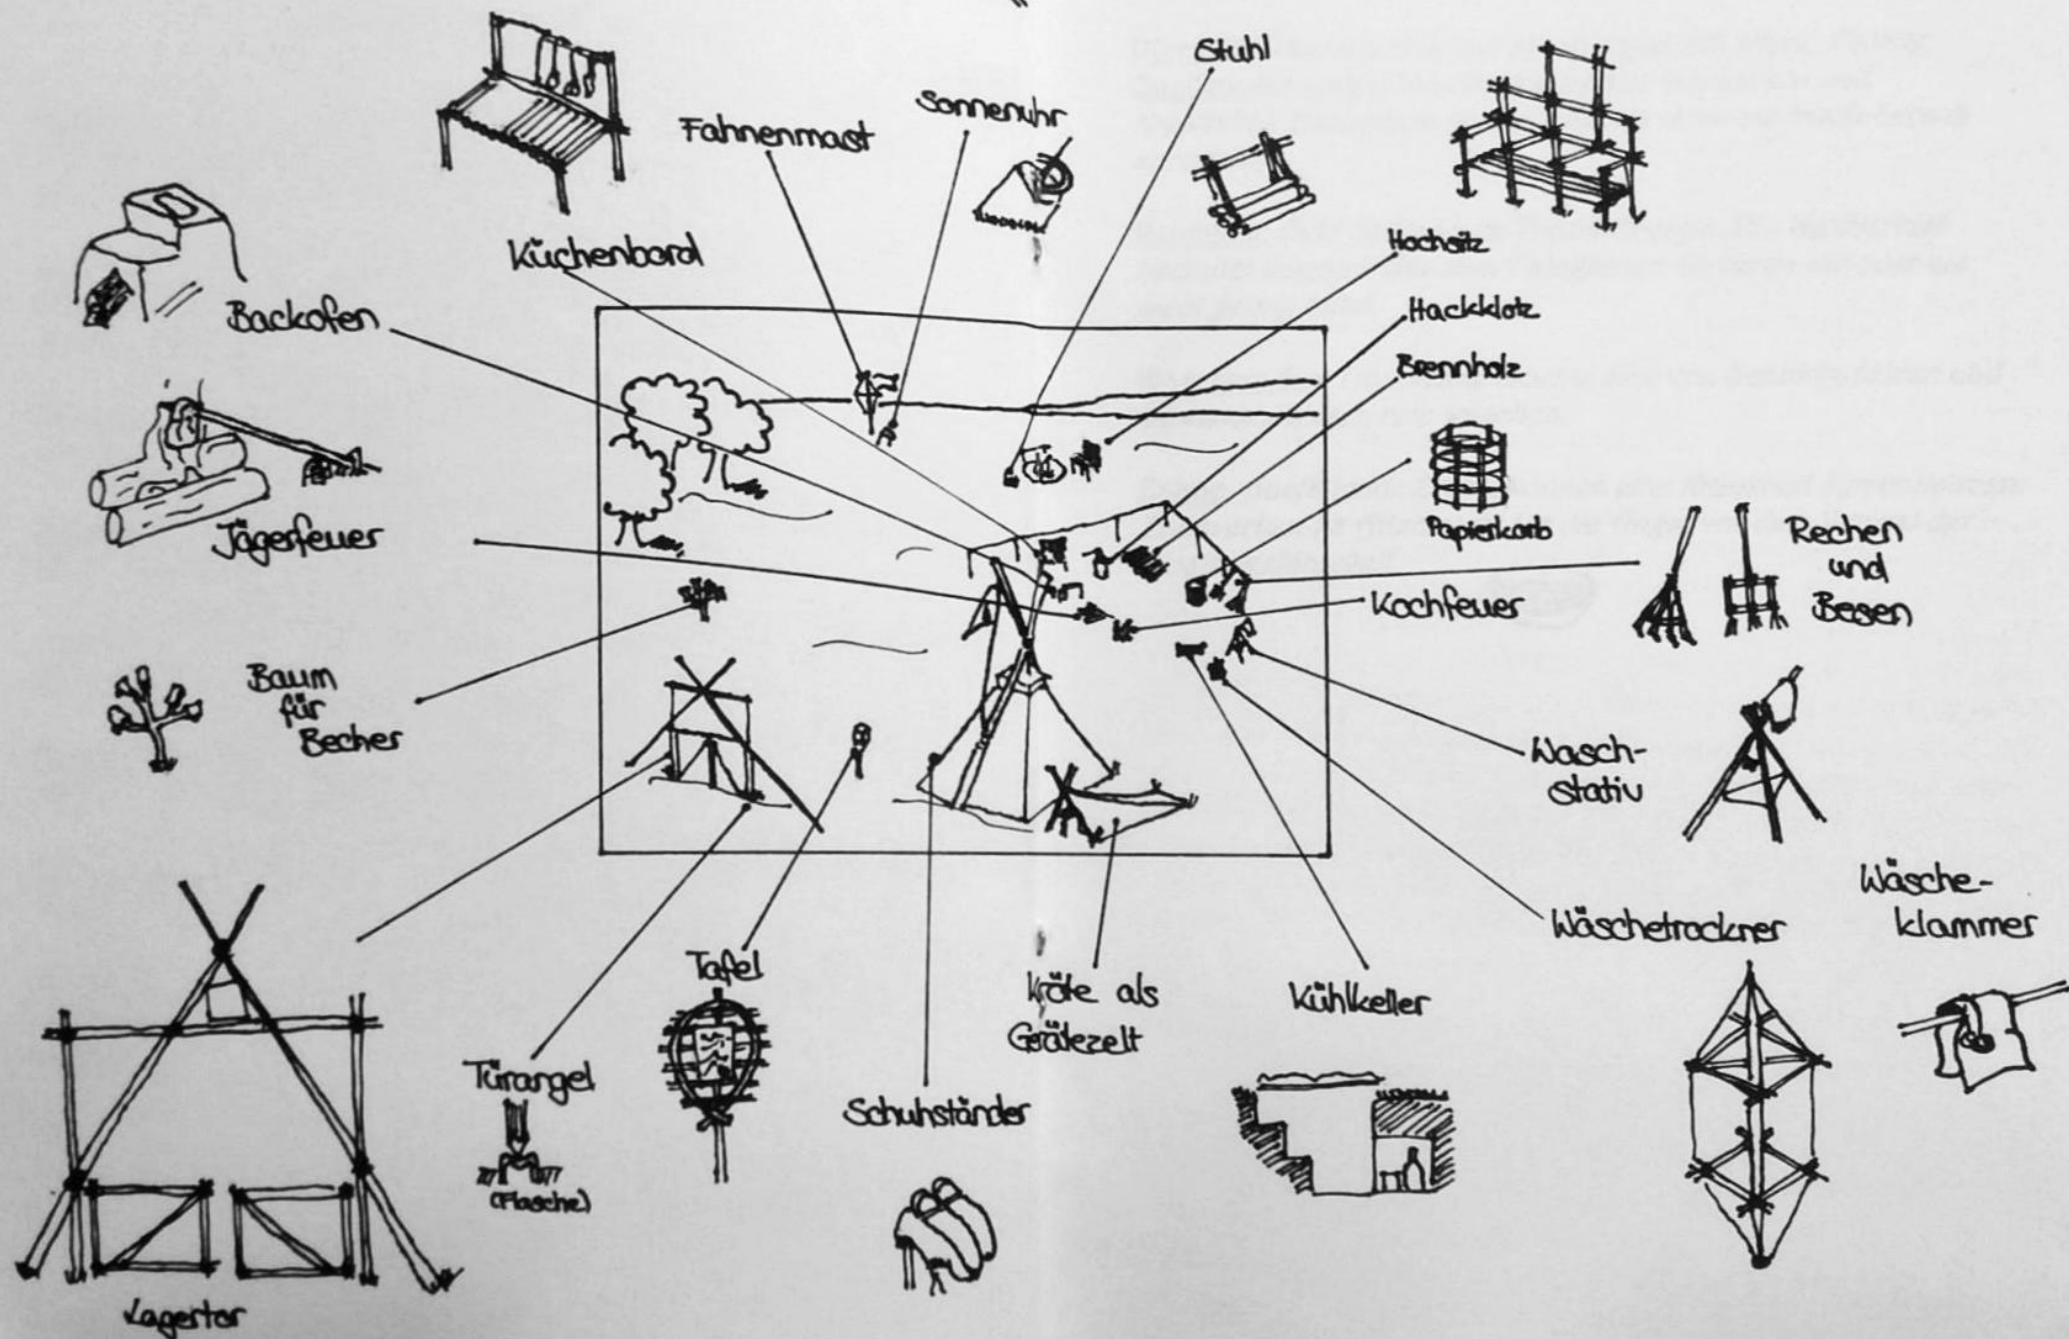 Stuhl
Sonnenuhr
Fahnenmast
Küchenbord
Hochsitz
Hackklotz
Brennholz
Backofen
Papierkorb
Rechen
und
Besen
Jägerfeuer
Kochfeuer
Baum
für
Becher
Wasch-
stativ
Wäsche-
klammer
Wäschetrockner
Tafel
Kühlkeller
Kröte als
Gerätezelt
Türangel
(Flasche)
Schuhständer
Lagertor